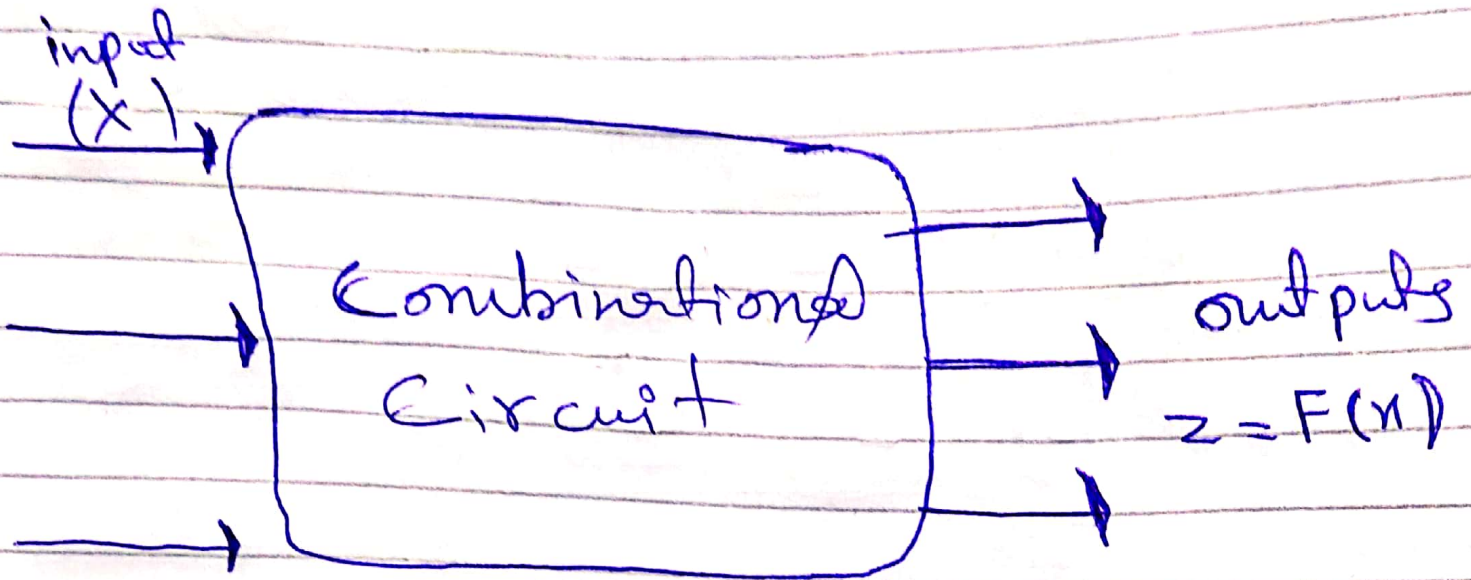 input
(X)
Combinational
Circuit
outputs
z = F(x)